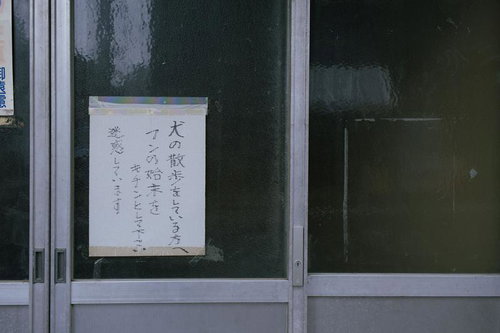 犬の散歩をしている方へ
フンの始末を
キチンとして下さい
迷惑しています
御遠慮